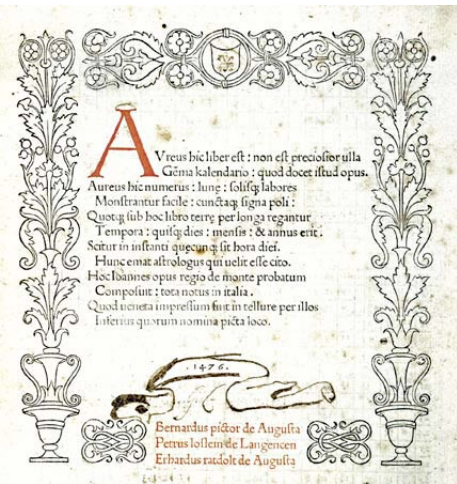 AVreus hic liber est : non est preciosior ulla
Gẽma kalendario : quod docet istud opus.
Aureus hic numerus : lune : solisq; labores
Monstrantur facile : cunctaq; signa poli :
Quotq; sub hoc libro terre per longa regantur
Tempora : quisq; dies : mensis : & annus erit.
Scitur in instanti quecunq; sit hora diei.
Hunc emat astrologus qui uelit esse cito.
Hoc Ioannes opus regio de monte probatum
Composuit : tota notus in italia.
Quod ueneta impressum fuit in tellure per illos
Inferius quorum nomina picta loco.
.1476.
Bernardus pictor de Augusta
Petrus loslein de Langencen
Erhardus ratdolt de Augusta